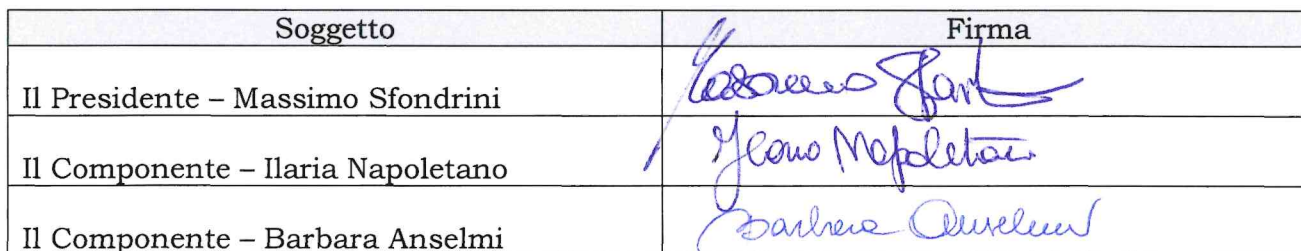 Soggetto Firma
Il Presidente – Massimo Sfondrini Massimo Sfon
Il Componente – Ilaria Napoletano Ilaria Napoletano
Il Componente – Barbara Anselmi Barbara Anselmi